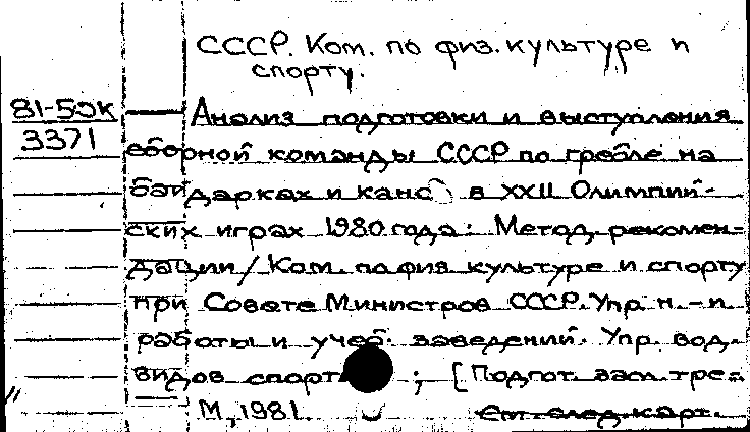 СССР. Ком. по физ. культуре и
спорту.
81-5
3371
— Анализ подготовки и выступления
сборной команды СССР по гребле на
байдарках и каноэ в XXII Олимпий-
ских играх 1980 года: Метод. рекомен-
дации / Ком. по физ культуре и спорту
при Совете Министров СССР. Упр н.-и.
работы и учеб. заведений. Упр. вод.
видов спорта ; [Подгот. засл. тре-
М, 1981. См. след. карт.